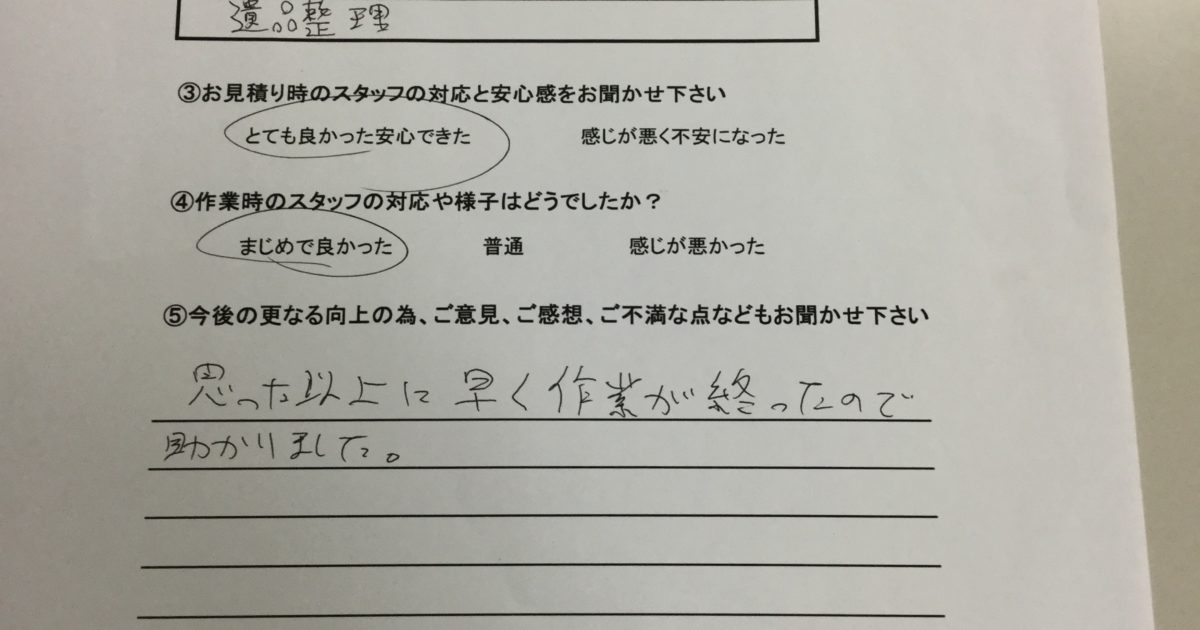 遺品整理
③お見積り時のスタッフの対応と安心感をお聞かせ下さい
とても良かった安心できた 感じが悪く不安になった
④作業時のスタッフの対応や様子はどうでしたか？
まじめで良かった 普通 感じが悪かった
⑤今後の更なる向上の為、ご意見、ご感想、ご不満な点などもお聞かせ下さい
思った以上に早く作業が終ったので
助かりました。